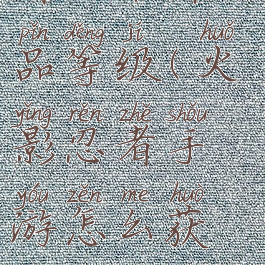 pǐn děng jí huǒ
品等级(火
yǐng rěn zhě shǒu
影忍者手
yóu zěn me huò
游怎么获